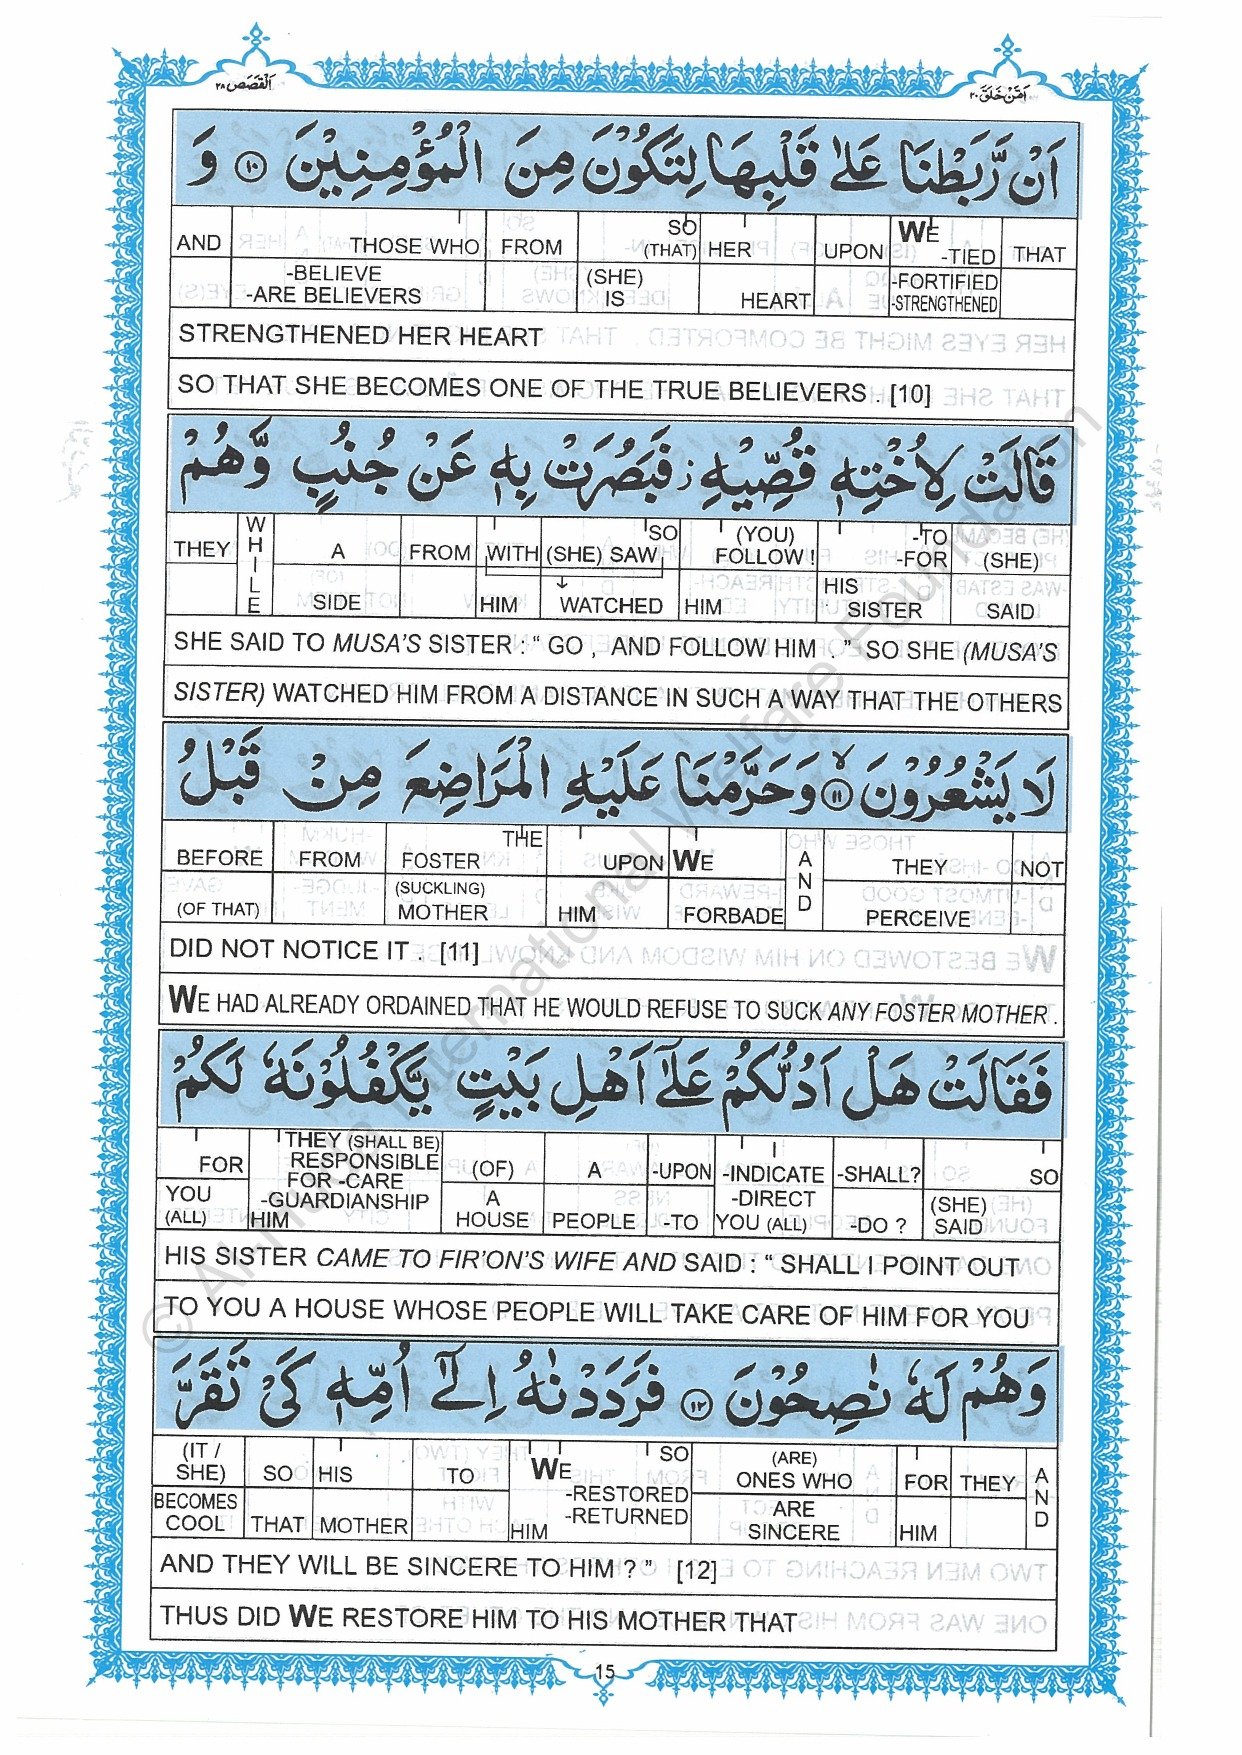 اَلْقَصَص ٢٨
اَمَّنْ خَلَقَ ٢٠
اَنْ رَّبَطْنَا عَلٰى قَلْبِهَا لِتَكُوْنَ مِنَ الْمُؤْمِنِيْنَ ﴿١٠﴾ وَ
AND THOSE WHO FROM SO (THAT) HER UPON WE -TIED THAT
-BELIEVE -ARE BELIEVERS (SHE) IS HEART -FORTIFIED -STRENGTHENED
STRENGTHENED HER HEART
SO THAT SHE BECOMES ONE OF THE TRUE BELIEVERS . [10]
قَالَتْ لِاُخْتِهٖ قُصِّيْهِ ز فَبَصُرَتْ بِهٖ عَنْ جُنُبٍ وَّهُمْ
THEY WHILE A FROM WITH (SHE) SAW SO (YOU) FOLLOW ! -TO -FOR (SHE)
SIDE HIM WATCHED HIM HIS SISTER SAID
SHE SAID TO MUSA'S SISTER : “ GO , AND FOLLOW HIM . ” SO SHE (MUSA'S
SISTER) WATCHED HIM FROM A DISTANCE IN SUCH A WAY THAT THE OTHERS
لَا يَشْعُرُوْنَ ﴿١١﴾ۙ وَحَرَّمْنَا عَلَيْهِ الْمَرَاضِعَ مِنْ قَبْلُ
BEFORE FROM THE FOSTER UPON WE AND THEY NOT
(OF THAT) (SUCKLING) MOTHER HIM FORBADE PERCEIVE
DID NOT NOTICE IT . [11]
WE HAD ALREADY ORDAINED THAT HE WOULD REFUSE TO SUCK ANY FOSTER MOTHER .
فَقَالَتْ هَلْ اَدُلُّكُمْ عَلٰٓى اَهْلِ بَيْتٍ يَّكْفُلُوْنَهٗ لَكُمْ
FOR THEY (SHALL BE) RESPONSIBLE FOR -CARE -GUARDIANSHIP (OF) A -UPON -INDICATE -DIRECT -SHALL? SO
YOU (ALL) HIM A HOUSE PEOPLE -TO YOU (ALL) -DO ? (SHE) SAID
HIS SISTER CAME TO FIR'ON'S WIFE AND SAID : “ SHALL I POINT OUT
TO YOU A HOUSE WHOSE PEOPLE WILL TAKE CARE OF HIM FOR YOU
وَهُمْ لَهٗ نٰصِحُوْنَ ﴿١٢﴾ فَرَدَدْنٰهُ اِلٰٓى اُمِّهٖ كَيْ تَقَرَّ
(IT / SHE) SO HIS TO WE SO -RESTORED -RETURNED (ARE) ONES WHO FOR THEY AND
BECOMES COOL THAT MOTHER HIM ARE SINCERE HIM
AND THEY WILL BE SINCERE TO HIM ? ” [12]
THUS DID WE RESTORE HIM TO HIS MOTHER THAT
15